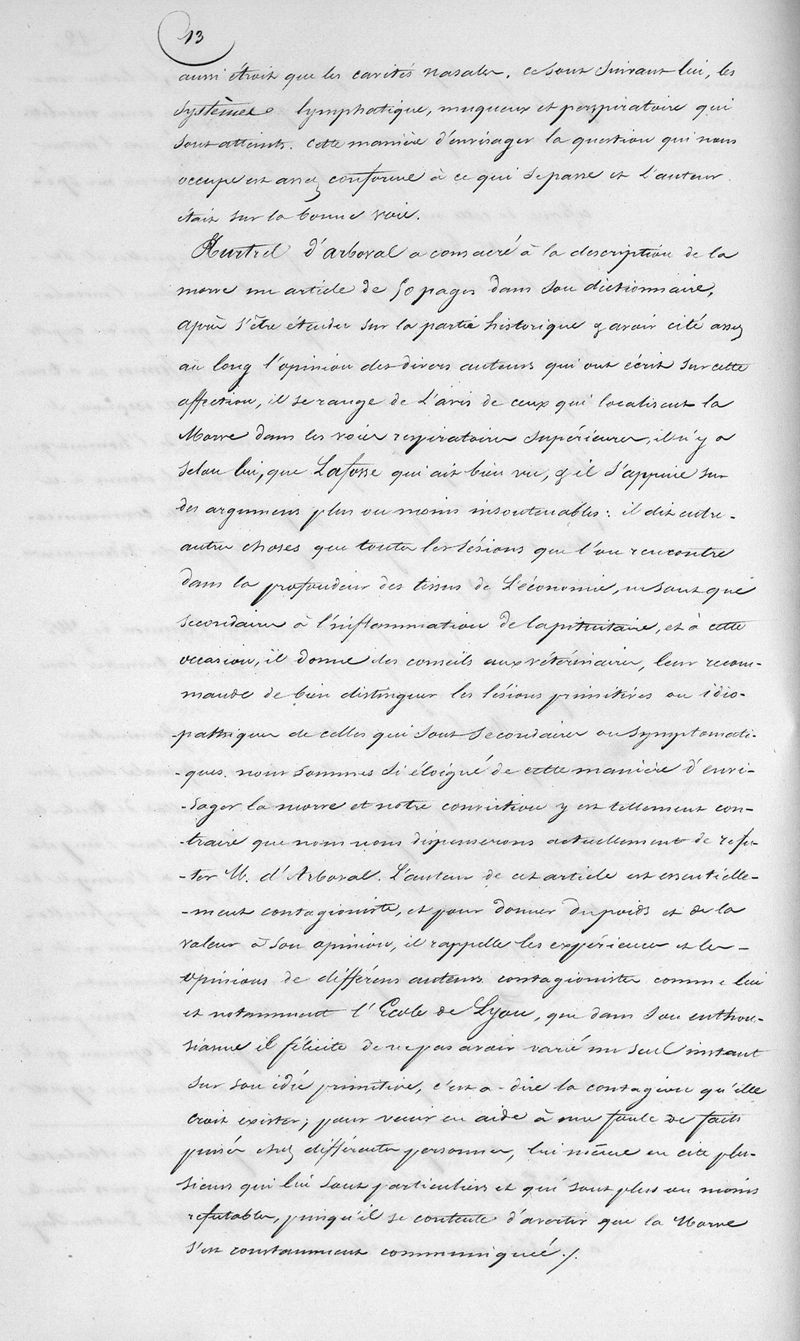 13
aussi étroit que les cavités nasales. ce sont suivant lui, les
systèmes lymphatique, muqueux et perspiratoire qui
sont atteints. cette manière d'envisager la question qui nous
occupe est assez conforme à ce qui se passe et L'auteur
était sur la bonne voie.
Hurtrel d'arboval a consacré à la description de la
morve un article de 50 pages dans son dictionnaire,
après s'être étendu sur la partie historique & avoir cité assez
au long l'opinion des divers auteurs qui ont écrit sur cette
affection, il se range de L'avis de ceux qui localisent la
Morve dans les voies respiratoires supérieures, il n'y a
selon lui, que Lafosse qui ait bien vu, & il s'appuie sur
des arguments plus ou moins insoutenables: il dit entre-
autres choses que toutes les lésions que l'on rencontre
dans la profondeur des tissus de L'économie, ne sont que
secondaires à l'inflammation de la pituitaire, et à cette
occasion, il donne des conseils aux vétérinaires, leur recom-
mande de bien distinguer les lésions primitives ou idio-
-pathiques de celles qui sont secondaires ou symptomati-
-ques. nous sommes si éloigné de cette manière d'envi-
-sager la morve et notre conviction y est tellement con-
-traire que nous nous dispenserons actuellement de refu-
-ter M. d'Arboval. L'auteur de cet article est essentielle-
-ment contagioniste, et pour donner du poids et de la
valeur à son opinion, il rappelle les expériences et les-
opinions de différens auteurs contagionistes comme lui
et notamment l'Ecole de Lyon, que dans son enthou-
siasme il félicite de ne pas avoir varié un seul instant
sur son idée primitive, c'est a-dire la contagion qu'elle
croit exister; pour venir en aide à une foule de faits
puisés chez différentes personnes, lui même en cite plu-
-sieurs qui lui sont particuliers et qui sont plus ou moins
refutables, puisqu'il se contente d'avertir que la Morve
s'est constamment communiquée ./.